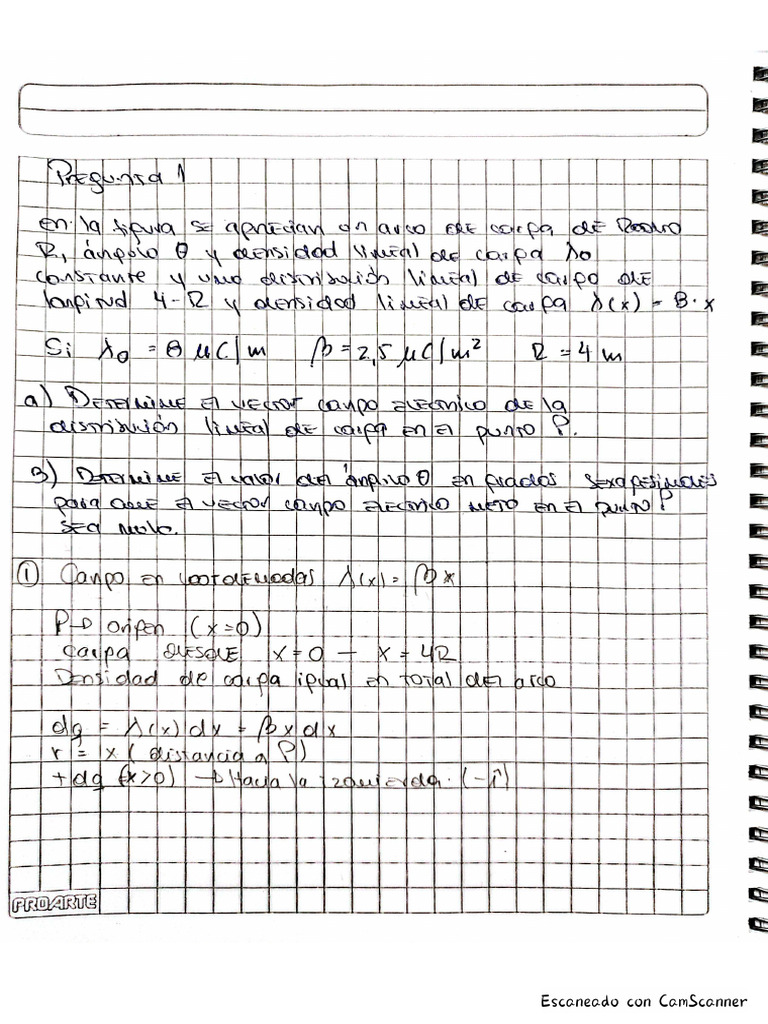 Pregunta 1
en la figura se aprecian un arco de carga de Radio
R, ángulo θ y densidad lineal de carga λ0
constante y una distribución lineal de carga de
longitud 4-R y densidad lineal de carga λ(x) = B·x
Si λ0 = 8 μC/m β = 2,5 μC/m² R = 4 m
a) Determine el vector campo electrico de la
distribución lineal de carga en el punto P.
B) Determine el valor del ángulo θ en grados sexagesimales
para que el vector campo electrico neto en el punto P
sea nulo.
① Campo en coordenadas λ(x) = βx
P→ origen (x=0)
carga desde x=0 - x=4R
Densidad de carga igual en total del arco
dq = λ(x) dx = βx dx
r = x (distancia a P)
+dq (x>0) → Hacia la izquierda (-î)
PROARTE
Escaneado con CamScanner